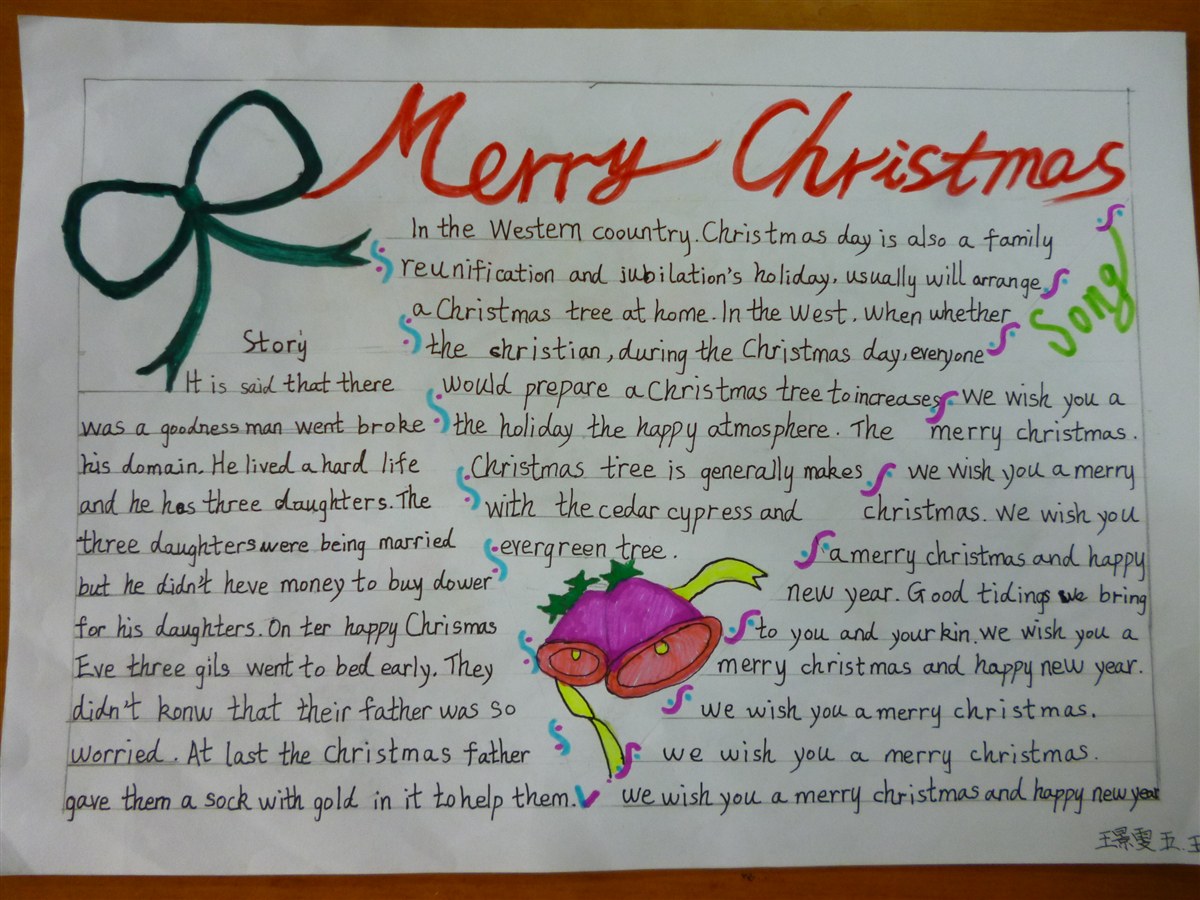 Merry Christmas
In the Western coountry. Christmas day is also a family
reunification and jubilation's holiday, usually will arrange
a Christmas tree at home. In the West, when whether
the christian, during the Christmas day, everyone
would prepare a Christmas tree to increases
the holiday the happy atmosphere. The
Christmas tree is generally makes
with the cedar cypress and
evergreen tree.
Story
It is said that there
was a goodness man went broke
his domain. He lived a hard life
and he has three daughters. The
three daughters were being married
but he didn't heve money to buy dower
for his daughters. On ter happy Chrismas
Eve three gils went to bed early. They
didn't konw that their father was so
worried. At last the Christmas father
gave them a sock with gold in it to help them.
Song
We wish you a
merry christmas.
We wish you a merry
christmas. We wish you
a merry christmas and happy
new year. Good tidings we bring
to you and your kin. We wish you a
merry christmas and happy new year.
We wish you a merry christmas.
We wish you a merry christmas.
We wish you a merry christmas and happy new year
王景雯 五.王